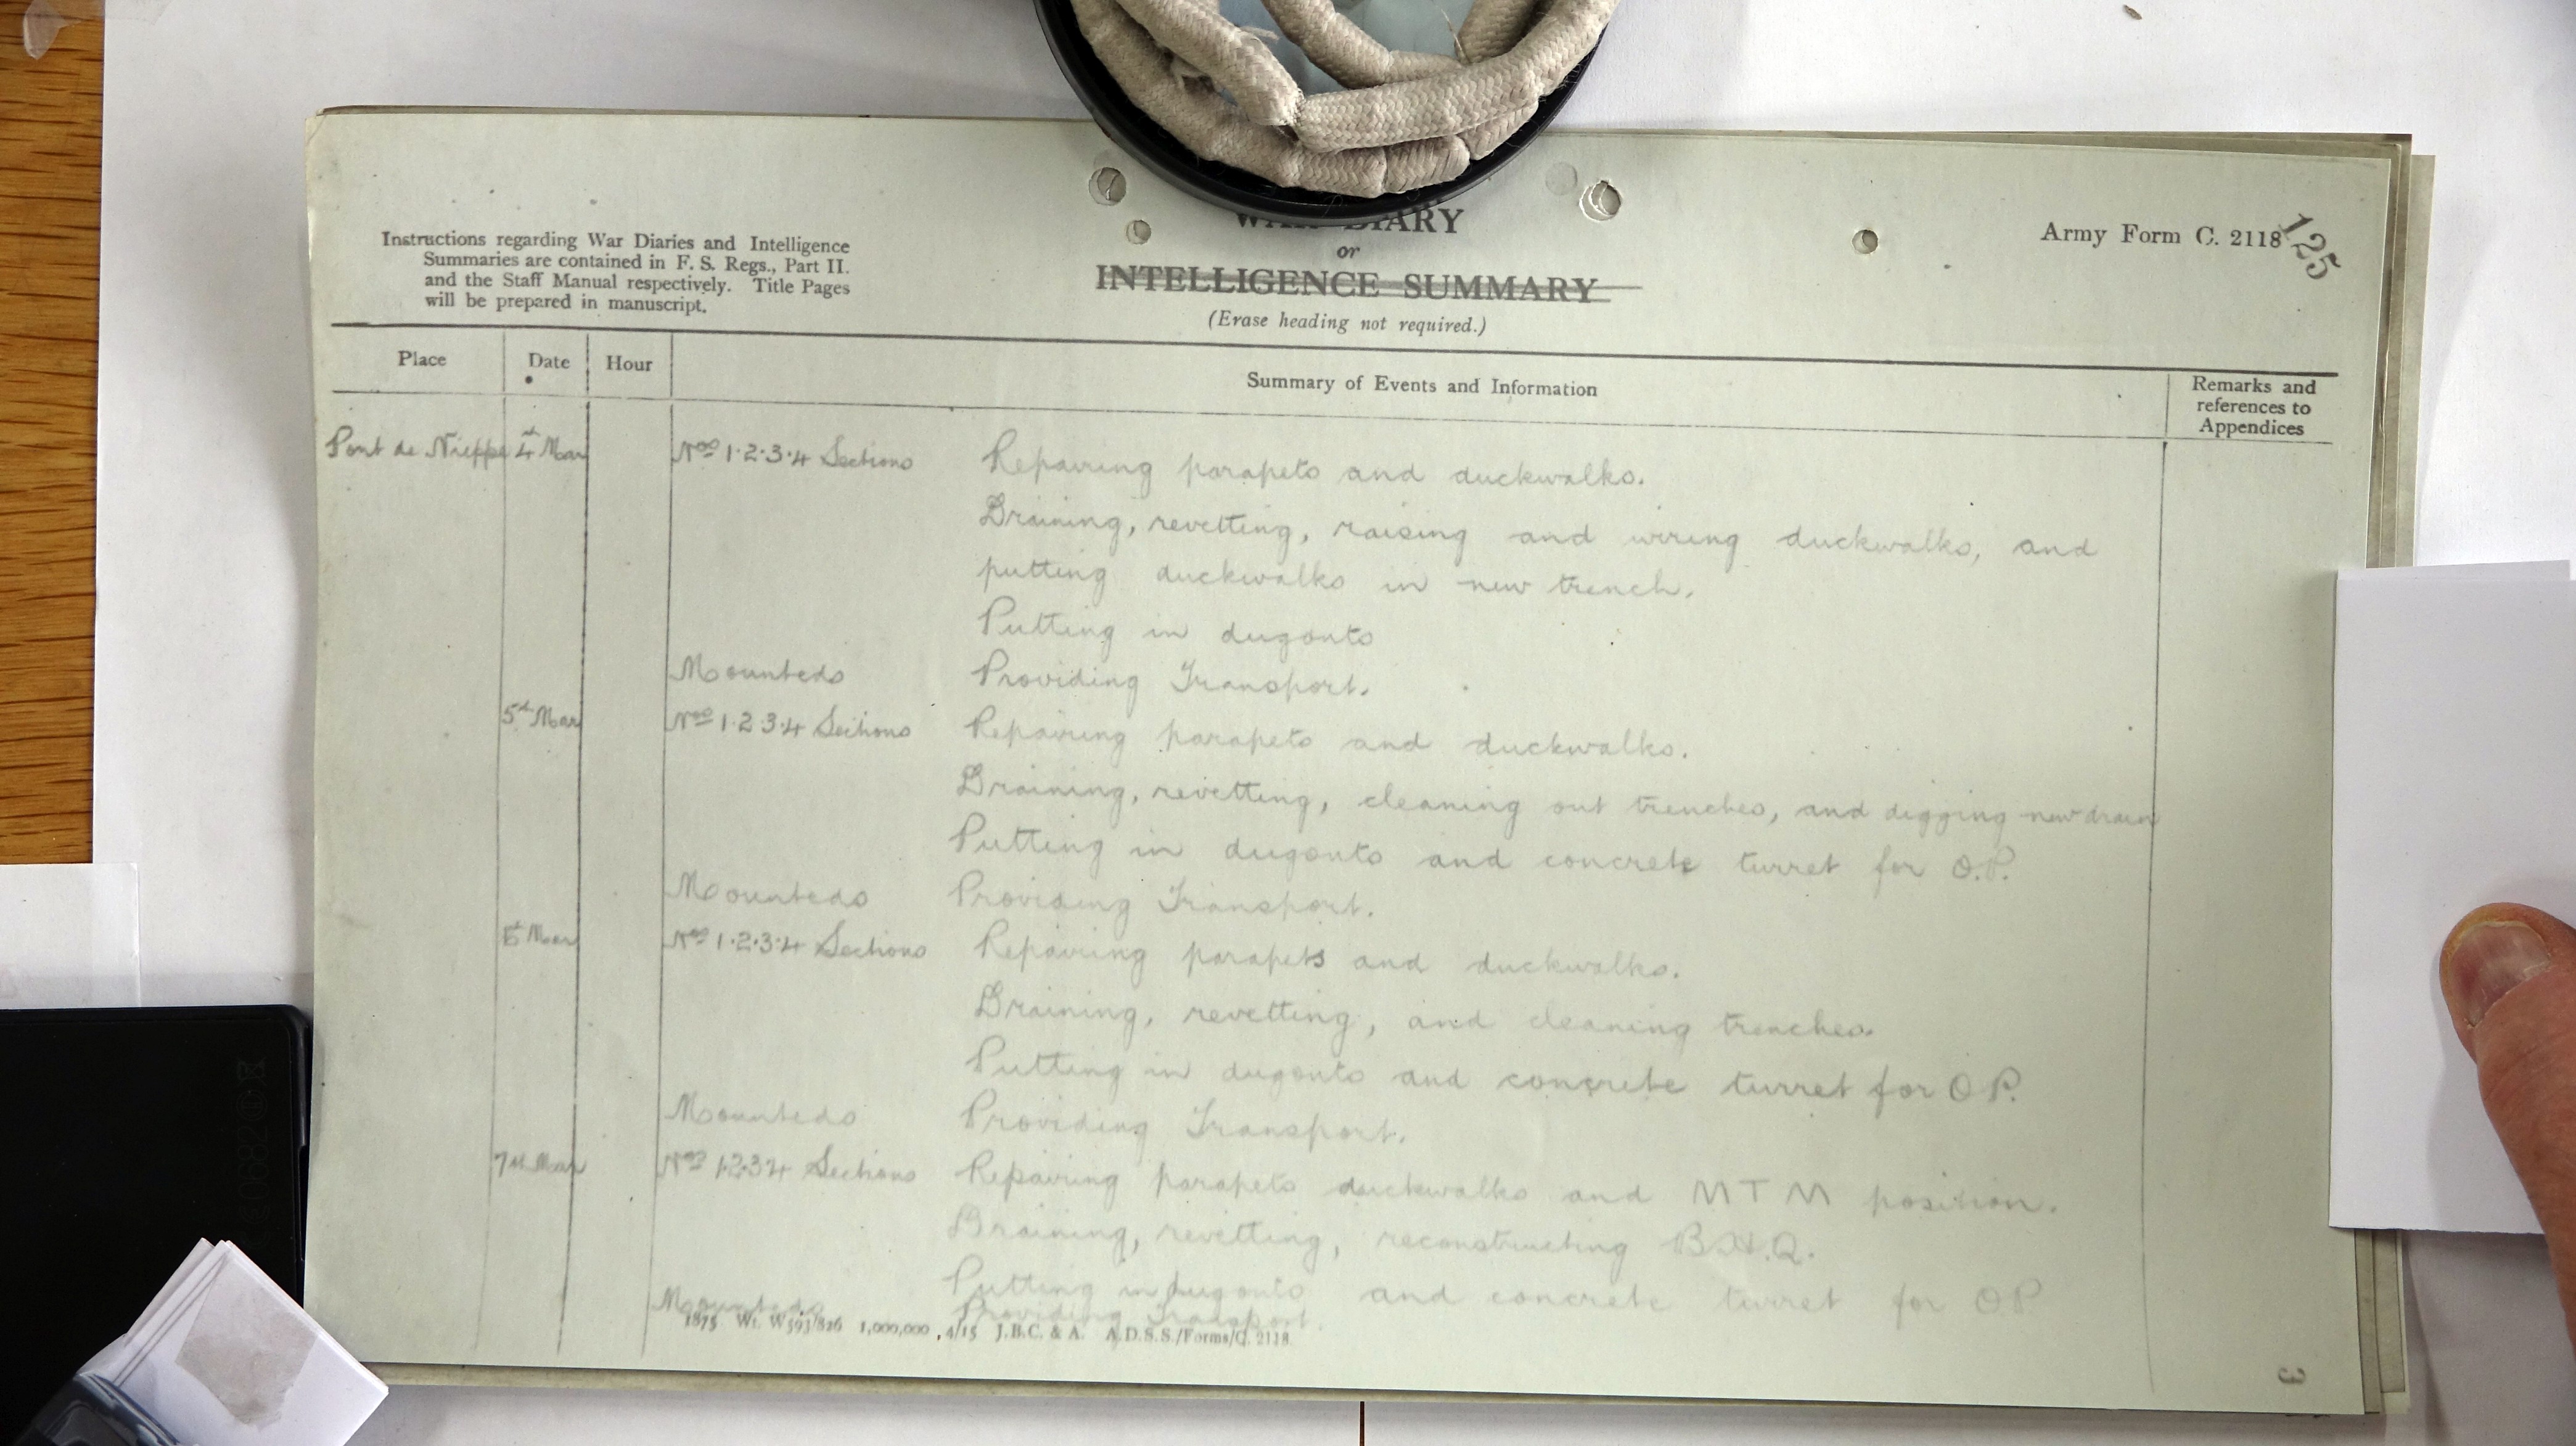 Instructions regarding War Diaries and Intelligence
Summaries are contained in F. S. Regs., Part II.
and the Staff Manual respectively. Title Pages
will be prepared in manuscript.
WAR DIARY
or
INTELLIGENCE SUMMARY
(Erase heading not required.)
Army Form C. 2118
125
Place Date Hour Summary of Events and Information Remarks and references to Appendices
Pont de Nieppe 4th Mar Nos 1.2.3.4 Sections Repairing parapets and duckwalks.
Draining, revetting, raising and wiring duckwalks, and
putting duckwalks in new trench.
Putting in dugouts
Mounteds Providing Transport.
5th Mar Nos 1.2.3.4 Sections Repairing parapets and duckwalks.
Draining, revetting, cleaning out trenches, and digging new drain
Putting in dugouts and concrete turret for O.P.
Mounteds Providing Transport.
6th Mar Nos 1.2.3.4 Sections Repairing parapets and duckwalks.
Draining, revetting, and cleaning trenches.
Putting in dugouts and concrete turret for O P.
Mounteds Providing Transport.
7th Mar Nos 1.2.3.4 Sections Repairing parapets duckwalks and M T M position.
Draining, revetting, reconstructing B.H.Q.
Putting in dugouts and concrete turret for O P
Mounteds Providing Transport.
1875 Wt. W593/826 1,000,000 4/15 J.B.C. & A. A.D.S.S./Forms/C. 2118.
3